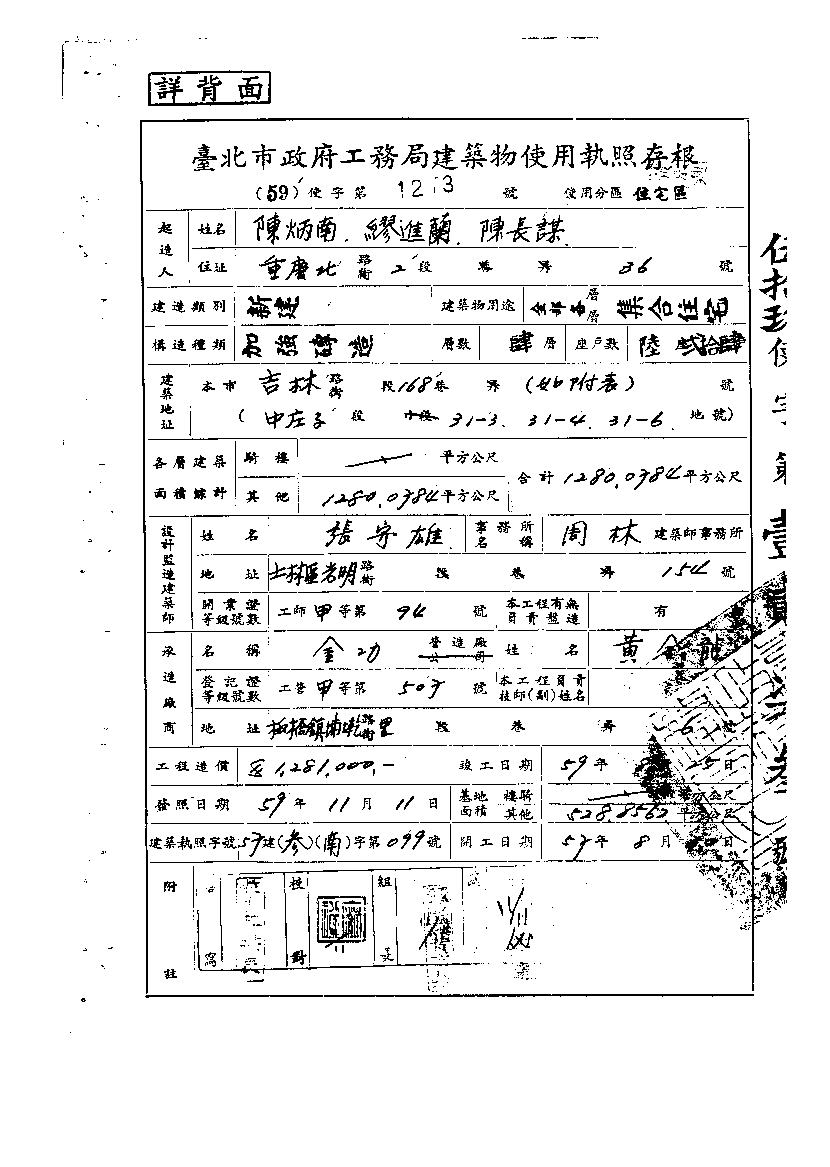 詳背面
臺北市政府工務局建築物使用執照存根
(59)使字第1213號 使用分區 住宅區
起造人 姓名 陳炳南、繆進蘭、陳長謀
住址 重慶北 路街 2段 巷 弄 36 號
建造類別 新建 建築物用途 全部各層層 集合住宅
構造種類 加強磚造 層數 肆層 座戶數 陸 貳拾肆
建築地址 本市 吉林 路街 段168巷 弄 (如附表) 號
(中庄子段 小段 31-3、31-4、31-6 地號)
各層建築面積綜計 騎樓 平方公尺 合計1280.0384平方公尺
其他 1280.0384平方公尺
設計監造建築師 姓名 張守雄 事務所名稱 周林 建築師事務所
地址 士林區光明路街 段 巷 弄 154 號
開業證等級號數 工師甲等第 94 號 本工程有無負責監造 有
承造廠商 名稱 金功 營造廠公司 姓名 黃金龍
登記證等級號數 工營甲等第 507 號 本工程負責技師(副)姓名
地址 板橋鎮 路街里 段 巷 弄 號
工程造價 1,281,000.- 竣工日期 59年 25日
發照日期 59年11月11日 基地面積 騎樓 平方公尺
其他 528.8562平方公尺
建築執照字號 57建(叁)(南)字第099號 開工日期 57年8月 日
附註 寫 校對 組長
11/11
伍拾玖使字第壹